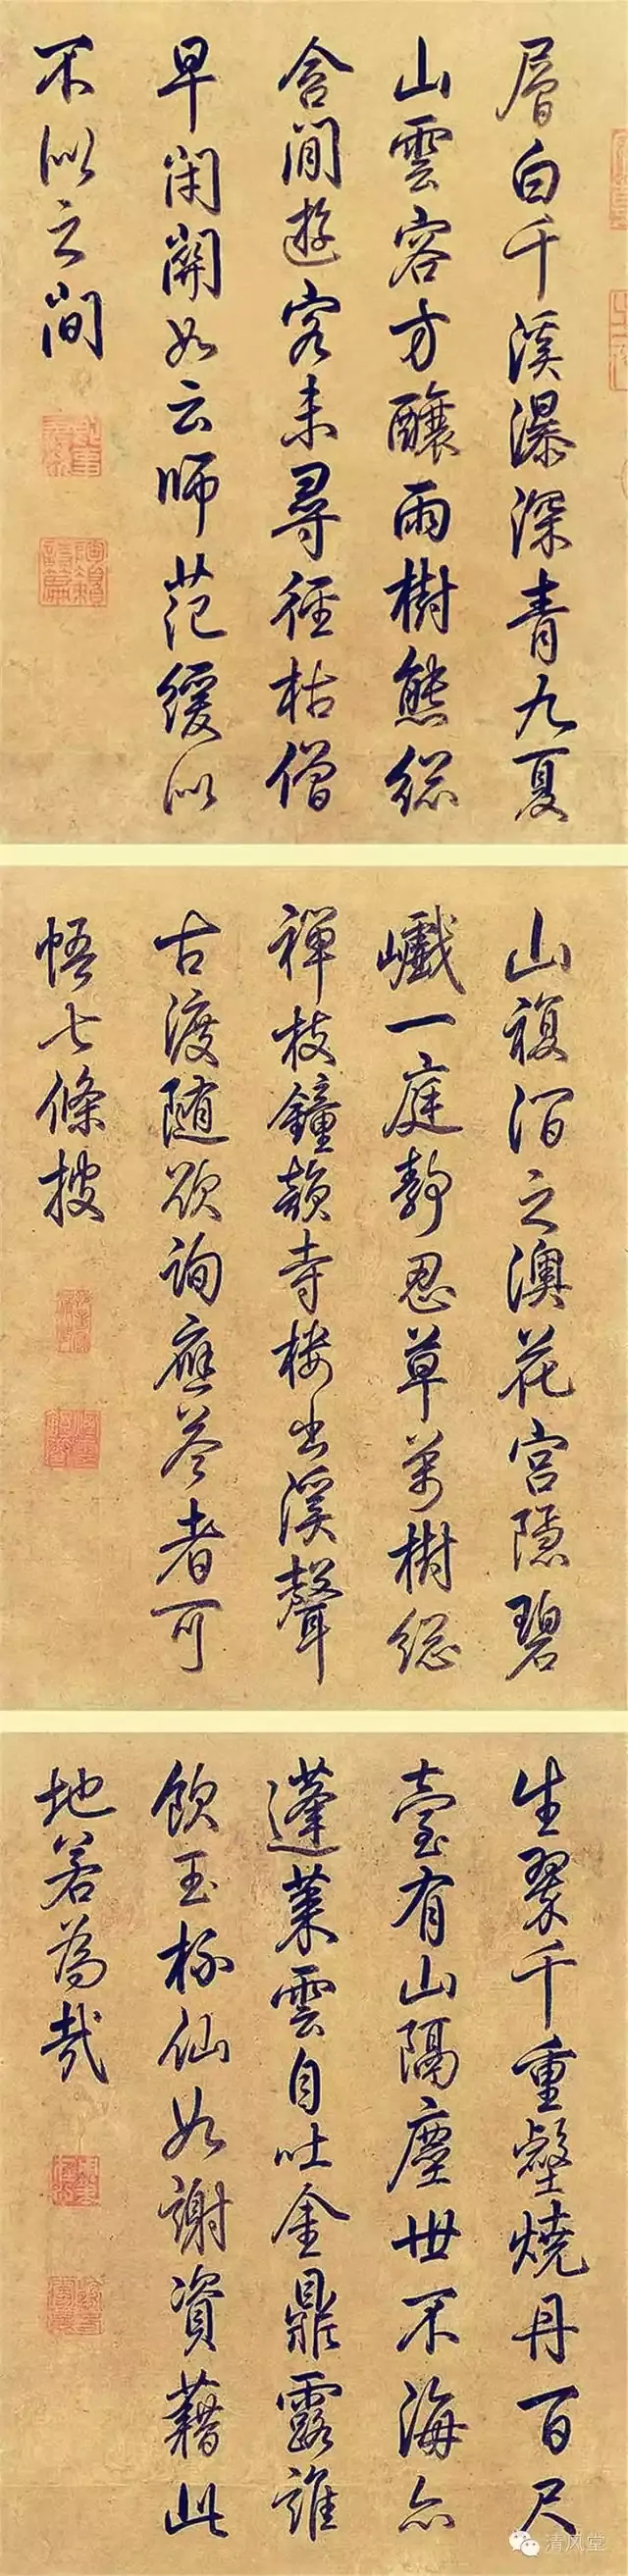 層白千溪瀑深青九夏
山雲容方釀雨樹態總
含間遊客未尋徑枯僧
早閉關如云師范緩似
不似之間
山複泪之澳花宮隱碧
巘一庭靜忍草萬樹總
禪枝鐘韻寺樓出溪聲
古渡隨欲詢應答者可
悟七條披
生翠千重壑燒丹百尺
臺有山隔塵世不海亦
蓬萊雲自吐金鼎露誰
飲玉杯仙如謝資藉此
地若為哉
清风堂